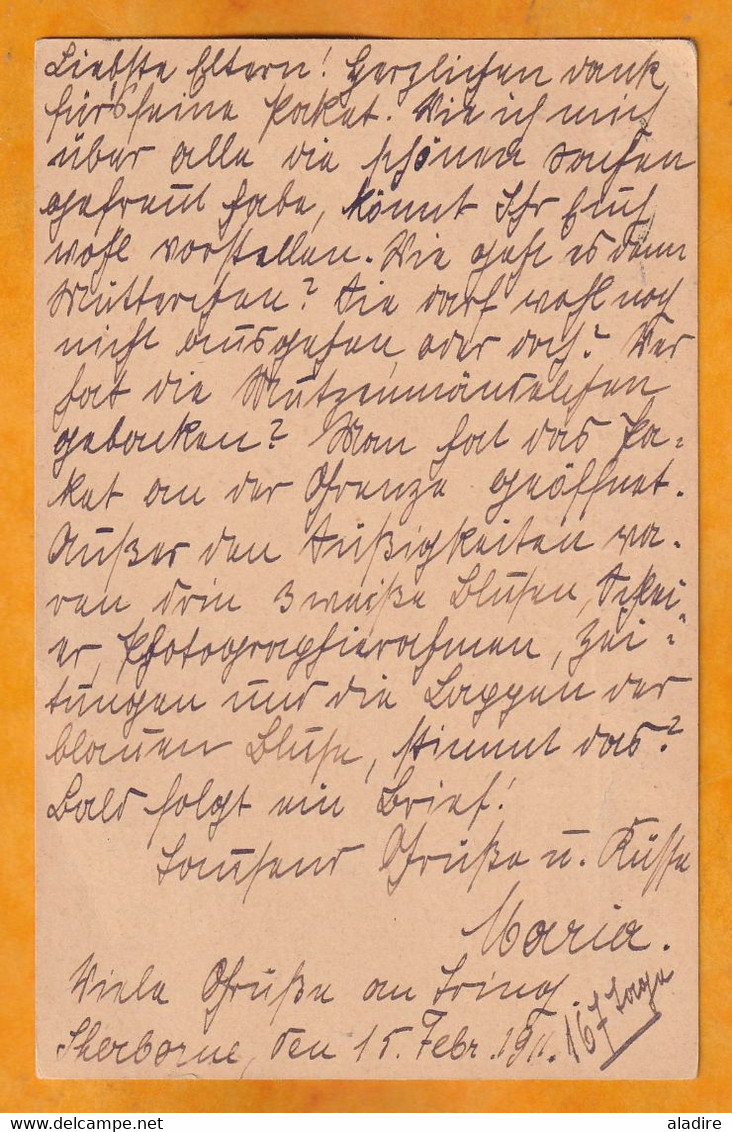 Liebste Eltern! Herzlichen Dank
für's feine Paket. Wie ich mich
über alle die schönen Sachen
gefreut habe, könnt Ihr Euch
wohl vorstellen. Wie geht es denn
Mütterchen? Sie darf wohl noch
nicht ausgehen, oder doch? Wer
hat die Mutzenmändelchen
gebacken? Man hat das Pa-
ket an der Grenze geöffnet.
Außer den Süßigkeiten wa-
ren drin 3 weiße Blusen, Schlei-
er, Photographierahmen, Zei-
tungen und die Lappen der
blauen Bluse, stimmt das?
Bald folgt ein Brief!
Tausend Grüße u. Küsse
Maria.
Viele Grüße an
Sherborne, den 15. Febr. 1911.
167 Tage
aladire